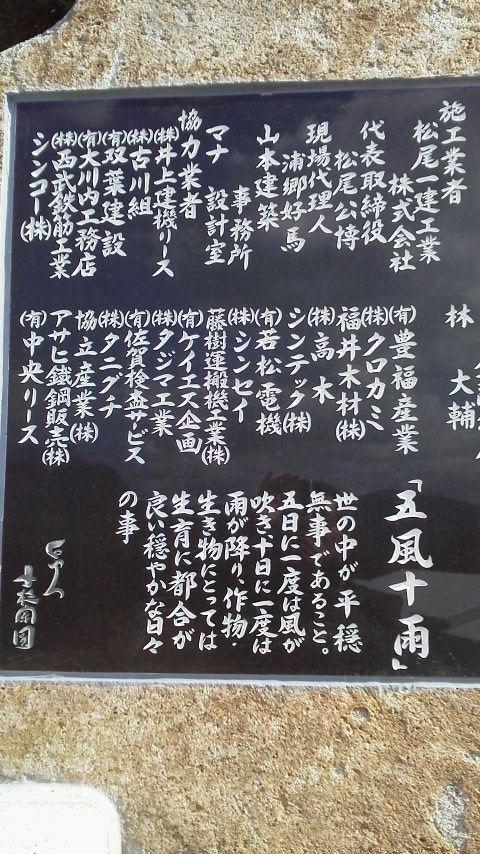 施工業者
松尾一建工業
株式会社
代表取締役
松尾公博
現場代理人
浦郷好馬
山本建築
事務所
マナ 設計室
協力業者
㈱井上建機リース
㈱古川組
㈲双葉建設
㈲大川内工務店
㈱西武鉄筋工業
シンコー㈱
林 大輔
㈲豊福産業
㈱クロカミ
福井木材㈱
㈱高木
シンテック㈱
㈲若松電機
㈱シンセイ
藤樹運搬機工業㈱
㈲ケイエス企画
㈱タジマ工業
㈲佐賀検査サービス
㈱タニグチ
協立産業㈱
アサヒ鐵鋼販売㈱
㈲中央リース
「五風十雨」
世の中が平穏
無事であること。
五日に一度は風が
吹き、十日に一度は
雨が降り、作物・
生き物にとっては
生育に都合が
良い穏やかな日々
の事